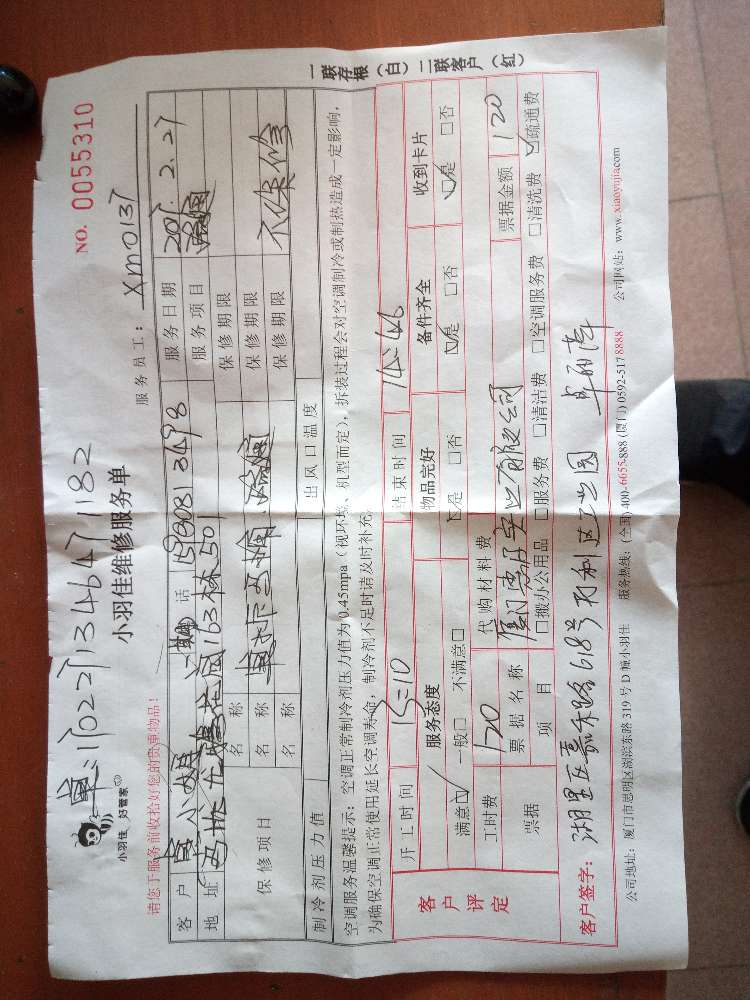 单:17022713464711182
NO. 0055310
小羽佳 好管家
小羽佳维修服务单
服务员工: Xm0137
请您于服务前收拾好您的贵重物品!
客 户 话 服务日期 2017.2.27
地 址 163林501 服务项目
保修项目
名 称 保修期限
名 称 保修期限
名 称 保修期限 不保修
制冷剂压力值 出风口温度
空调服务温馨提示:空调正常制冷剂压力值为0.45mpa(视环境、机型而定),拆装过程会对空调制冷或制热造成一定影响,
为确保空调正常使用延长空调寿命,制冷剂不足时请及时补充。
客户评定
开工时间 13:10 结束时间 14:46
服务态度 物品完好 备件齐全 收到卡片
满意☑ 一般□ 不满意□ ☑是 □否 ☑是 □否 ☑是 □否
工时费 120 代购材料费 票据金额 120
票据 票据名称 厦门 实业有限公司
项 目 □搬办公用品 □服务费 □清洁费 □空调服务费 □清洗费 ☑疏通费
客户签字: 湖里区嘉禾路618号 工业园
公司地址:厦门市思明区湖滨东路319号D幢小羽佳 服务热线:(全国)400-6655-888 (厦门)0592-5178888 公司网站:www.xiaoyujia.com
一联存根(白)二联客户(红)